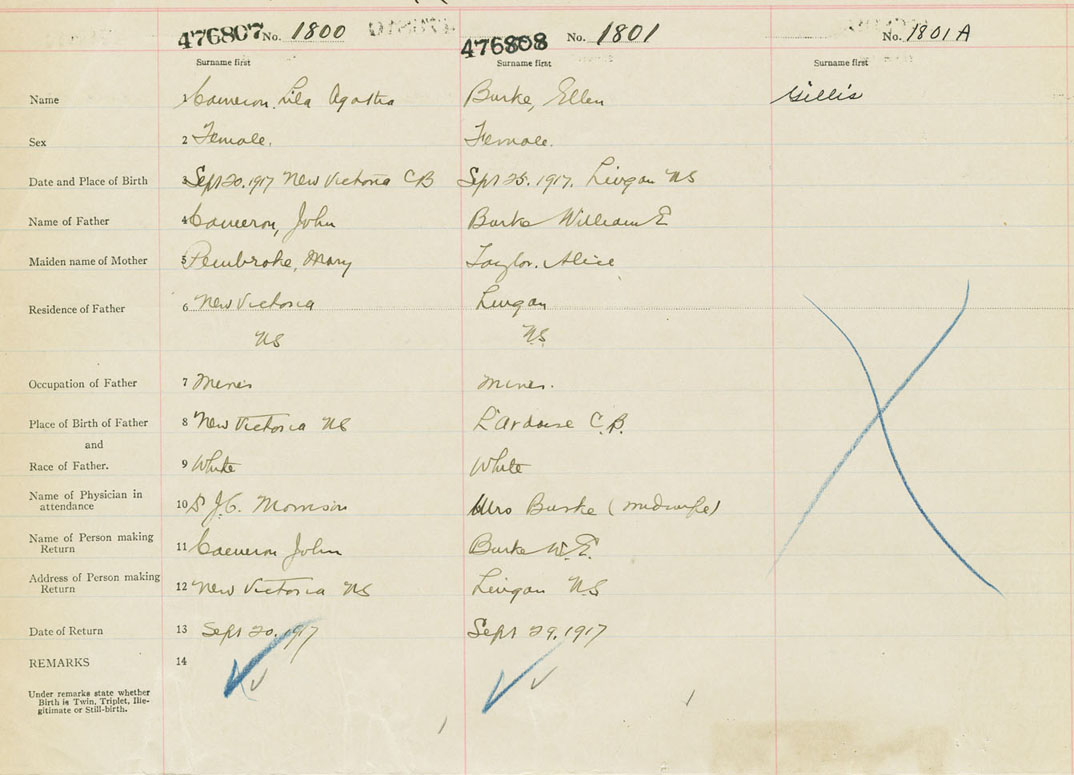 476807 No. 1800 476808 No. 1801 No. 1801A
Surname first Surname first Surname first
Name 1 Cameron, Lila Agatha Burke, Ellen Gillis
Sex 2 Female. Female.
Date and Place of Birth 3 Sept 20, 1917 New Victoria CB Sept 25, 1917. Lingan NS
Name of Father 4 Cameron, John Burke William E
Maiden name of Mother 5 Pembroke, Mary Taylor, Alice
Residence of Father 6 New Victoria Lingan
NS NS
Occupation of Father 7 Miner Miner.
Place of Birth of Father 8 New Victoria NS L'Ardoise C.B.
and
Race of Father. 9 White White
Name of Physician in
attendance 10 J.G. Morrison Mrs Burke (midwife)
Name of Person making
Return 11 Cameron John Burke W.E.
Address of Person making
Return 12 New Victoria NS Lingan NS
Date of Return 13 Sept 20, 1917 Sept 29, 1917
REMARKS 14
Under remarks state whether
Birth is Twin, Triplet, Ille-
gitimate or Still-birth.